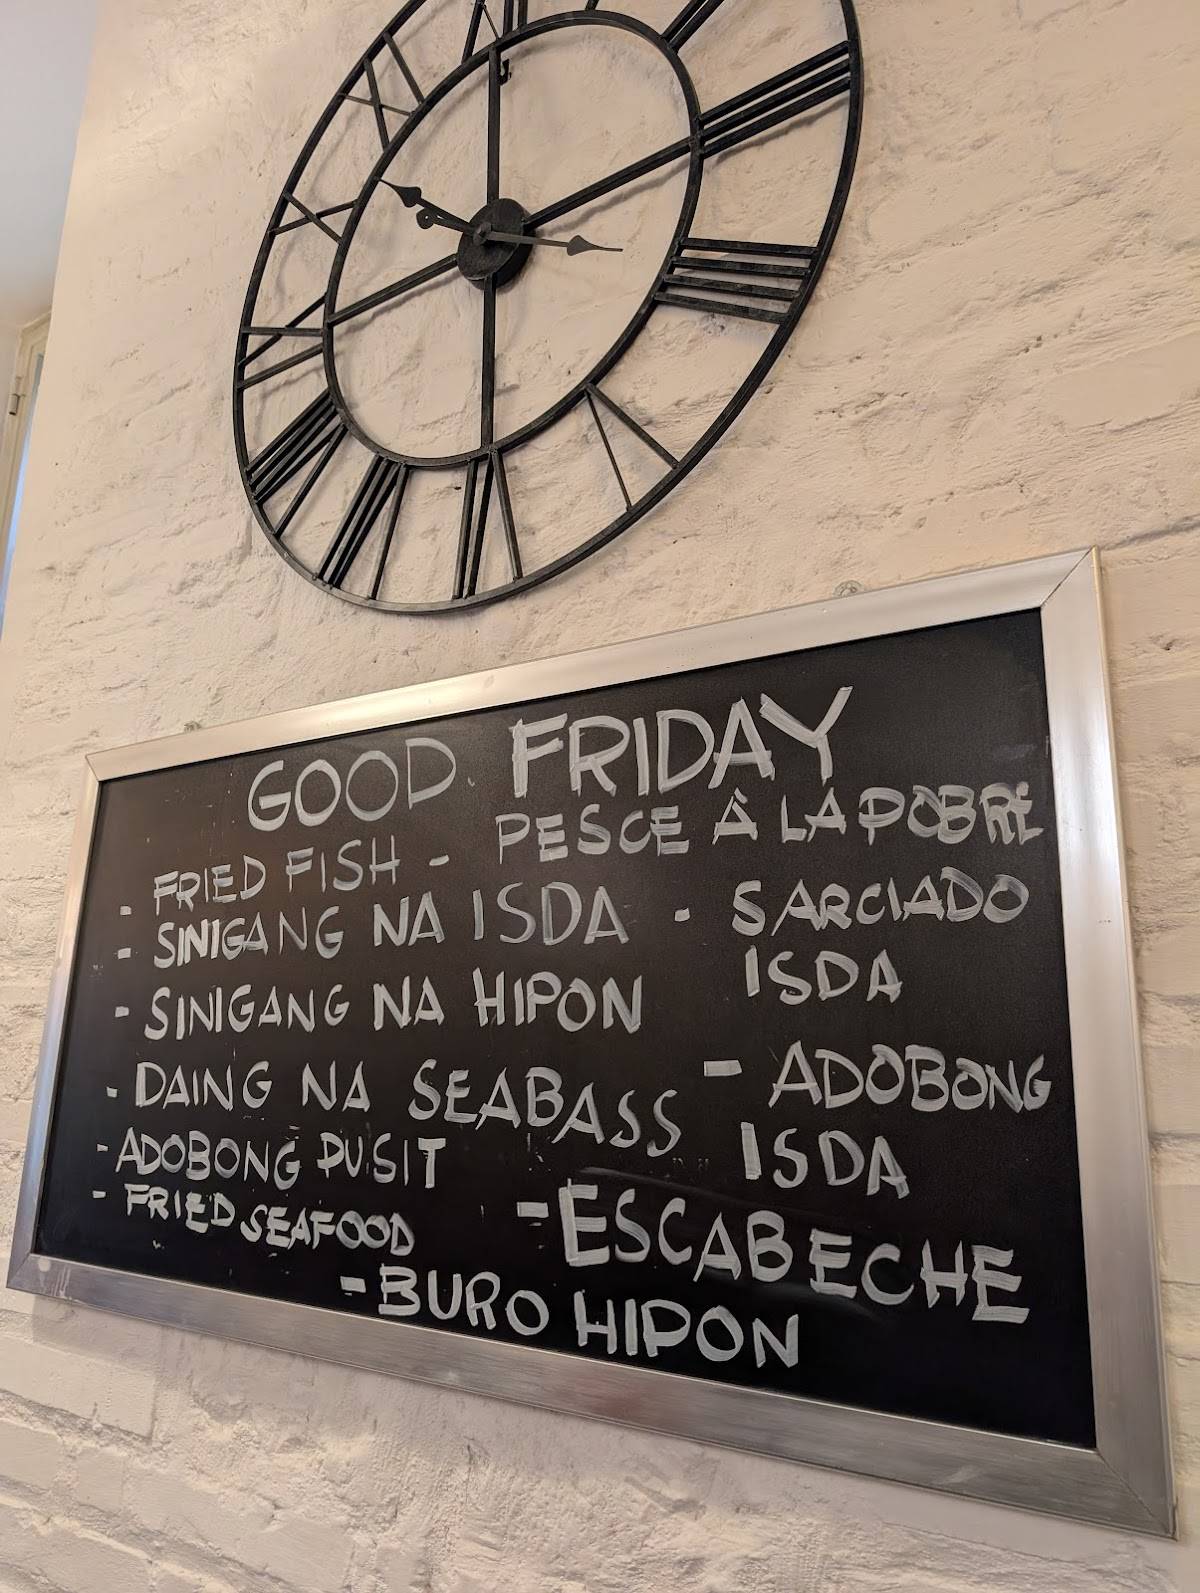 GOOD FRIDAY
- FRIED FISH - PESCE À LA POBRE
- SINIGANG NA ISDA - SARCIADO
ISDA
- SINIGANG NA HIPON
- DAING NA SEABASS - ADOBONG
ISDA
- ADOBONG PUSIT
- FRIED SEAFOOD - ESCABECHE
- BURO HIPON